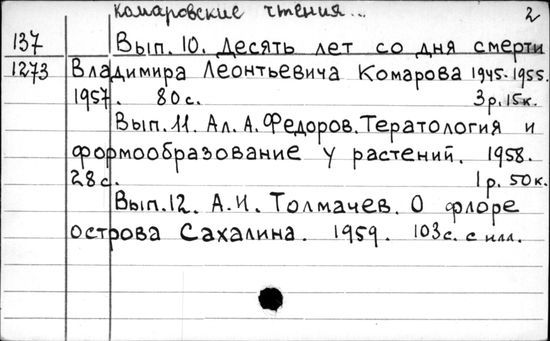 Комаровские чтения... 2
137 Вып. 10. Десять лет со дня смерти
1273 Владимира Леонтьевича Комарова 1945-1955.
1957. 80 с. 3 р. 15 к.
Вып. 11. Ал. А. Федоров. Тератология и
формообразование у растений. 1958.
28 с. 1 р. 50 к.
Вып. 12. А.И. Толмачев. О флоре
острова Сахалина. 1959. 103 с. с илл.